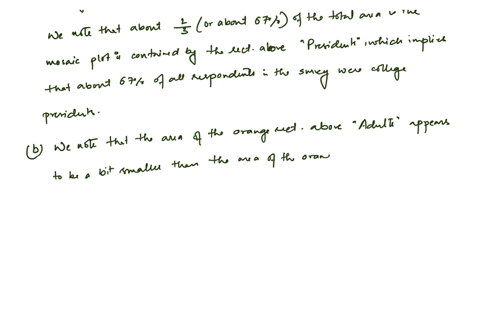 We note that about 2/3 (or about 67%) of the total area in the
mosaic plot is contained by the rect. above "Presidents", which implies
that about 67% of all respondents in the survey were college
presidents.
(b) We note that the area of the orange rect. above "Adults" appears
to be a bit smaller than the area of th oran